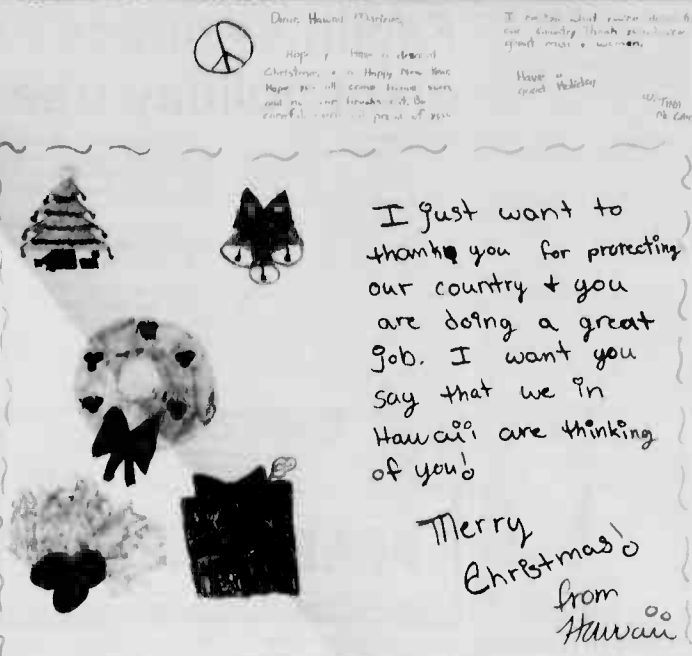 Dear Hawaii Marines,
Hope
Christmas, & a Happy New Year
Hope you all come home soon
and no one
careful
of you
I
our country Thank
great men & women.
Have a
great Holiday
I just want to
thank you for protecting
our country & you
are doing a great
job. I want you
say that we in
Hawaii are thinking
of you!
Merry
Christmas!
from
Hawaii